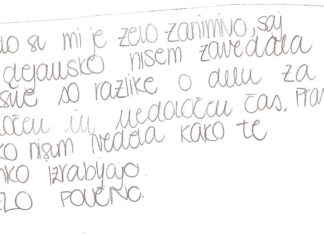 mi je zelo zanimivo, saj
dejansko nisem zavedala
so razlike o delu za
in nedoločen čas. Prav
nisem vedela kako te
izrabljajo.
POUČNO.